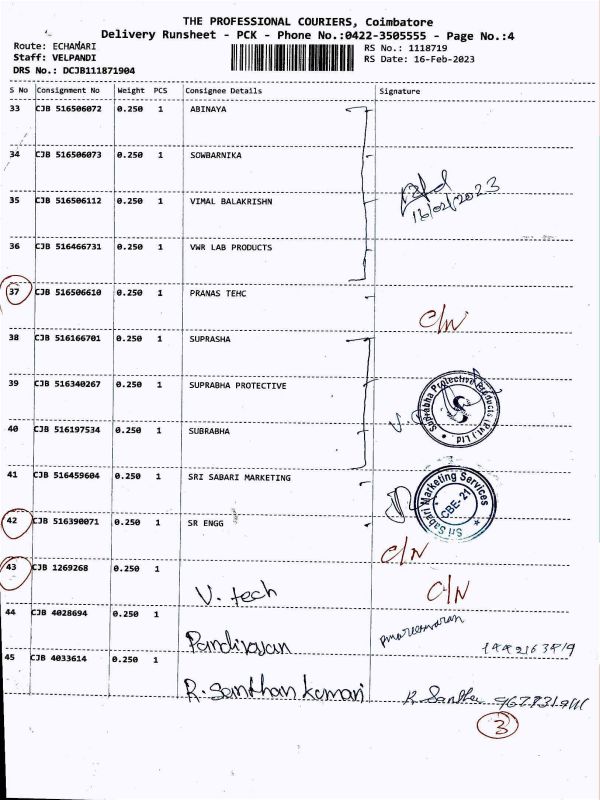 THE PROFESSIONAL COURIERS, Coimbatore
Delivery Runsheet - PCK - Phone No.:0422-3505555 - Page No.:4
Route: ECHANARI
RS No.: 1118719
Staff: VELPANDI
RS Date: 16-Feb-2023
DRS No.: DCJB111871904
S No Consignment No Weight PCS Consignee Details Signature
33 CJB 516506072 0.250 1 ABINAYA
34 CJB 516506073 0.250 1 SOWBARNIKA
35 CJB 516506112 0.250 1 VIMAL BALAKRISHN
16/02/2023
36 CJB 516466731 0.250 1 VWR LAB PRODUCTS
37 CJB 516506610 0.250 1 PRANAS TEHC
C/N
38 CJB 516166701 0.250 1 SUPRASHA
39 CJB 516340267 0.250 1 SUPRABHA PROTECTIVE
Suprabha Protective Products (Pvt.) Ltd
40 CJB 516197534 0.250 1 SUBRABHA
41 CJB 516459604 0.250 1 SRI SABARI MARKETING
Sri Sabari Marketing Services
CBE-21
42 CJB 516390071 0.250 1 SR ENGG
C/N
43 CJB 1269268 0.250 1 V. tech
C/N
44 CJB 4028694 0.250 1 Pandirajan
45 CJB 4033614 0.250 1 R. Santhan kumari
R. Santha
3